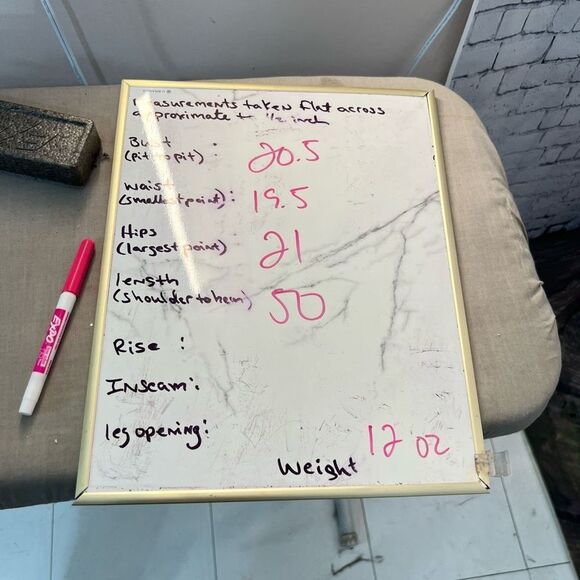 Measurements taken flat across
approximate to 1/2 inch
Bust
(pit to pit) : 20.5
Waist
(smallest point) : 19.5
Hips
(largest point) 21
length
(shoulder to hem) 50
Rise :
INseam :
leg opening :
12 oz
Weight
EXPO